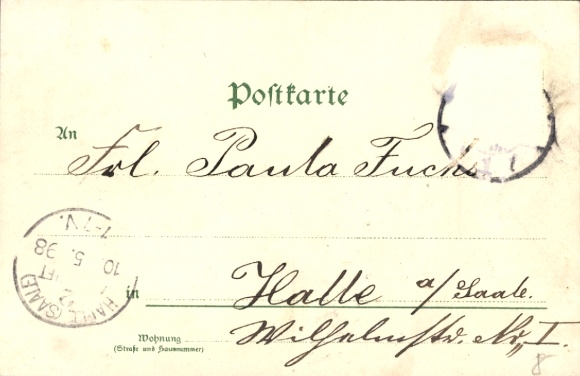 Postkarte
An
Frl. Paula Fuchs
in
Halle a/Saale.
Wohnung
(Straße und Hausnummer)
Wilhelmstr. No. I.
HALLE (SAALE)
10. 5. 98
7-7V.
8